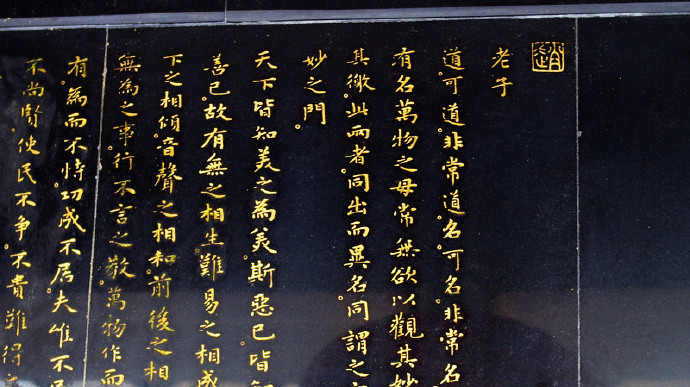 老子
道可道。非常道。名可名。非常名
有名萬物之母常無欲以觀其妙
其徼。此兩者。同出而異名。同謂之
妙之門。
天下皆知美之為美斯惡已。皆知
善已。故有無之相生難易之相成
下之相傾音聲之相和前後之相
無為之事。行不言之教。萬物作而
有。為而不恃。功成不居。夫唯不居
不尚賢。使民不爭。不貴難得之